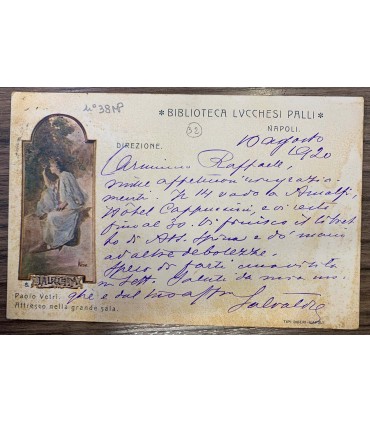 n° 38
* BIBLIOTECA LVCCHESI PALLI *
NAPOLI.
32
DIREZIONE.
10 agosto
1920
Carissimo Raffaele,
mille affettuosi ringrazia-
menti. Il 14 vado la Amalfi,
Hôtel Cappuccini, e ci resto
fino al 30. Vi finisco il libret-
to di Att. Spina e do' mano
ad altre debolezze.
Spero di farti una visita
in Sett. Saluti da mia mo-
glie e dal tuo aff.
Salvatore
Paolo Vetri.
Affresco nella grande sala.